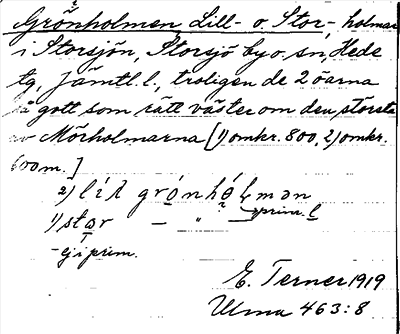 Grönholmen Lill- o. Stor-, holmar
i Storsjön, Storsjö by o. sn, Hede
tg, Jämtl. l., troligen de 2 öarna
så gott som rätt väster om den största
av Mörholmarna [1) omkr. 800, 2) omkr.
600 m.]
2) lil grónhólmən
1) stor — " — prim. l
- gi prim.
E. Terner 1919
Ulma 463:8